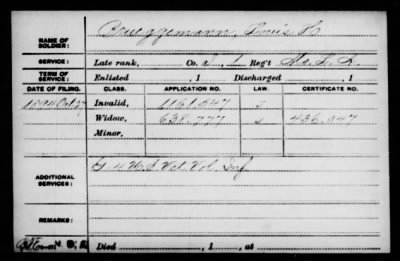 NAME OF SOLDIER: Brueggemann, Louis H
SERVICE: Late rank, Co. I, 1 Reg't Mo. L. A.
TERM OF SERVICE: Enlisted , 1 Discharged , 1
DATE OF FILING. CLASS. APPLICATION NO. LAW. CERTIFICATE NO.
Invalid, 1161.647
Widow, 638.777 436.047
Minor,
ADDITIONAL SERVICES: G. 4 U.S. Vet. Vol. Inf
REMARKS:
Died , 1 , at